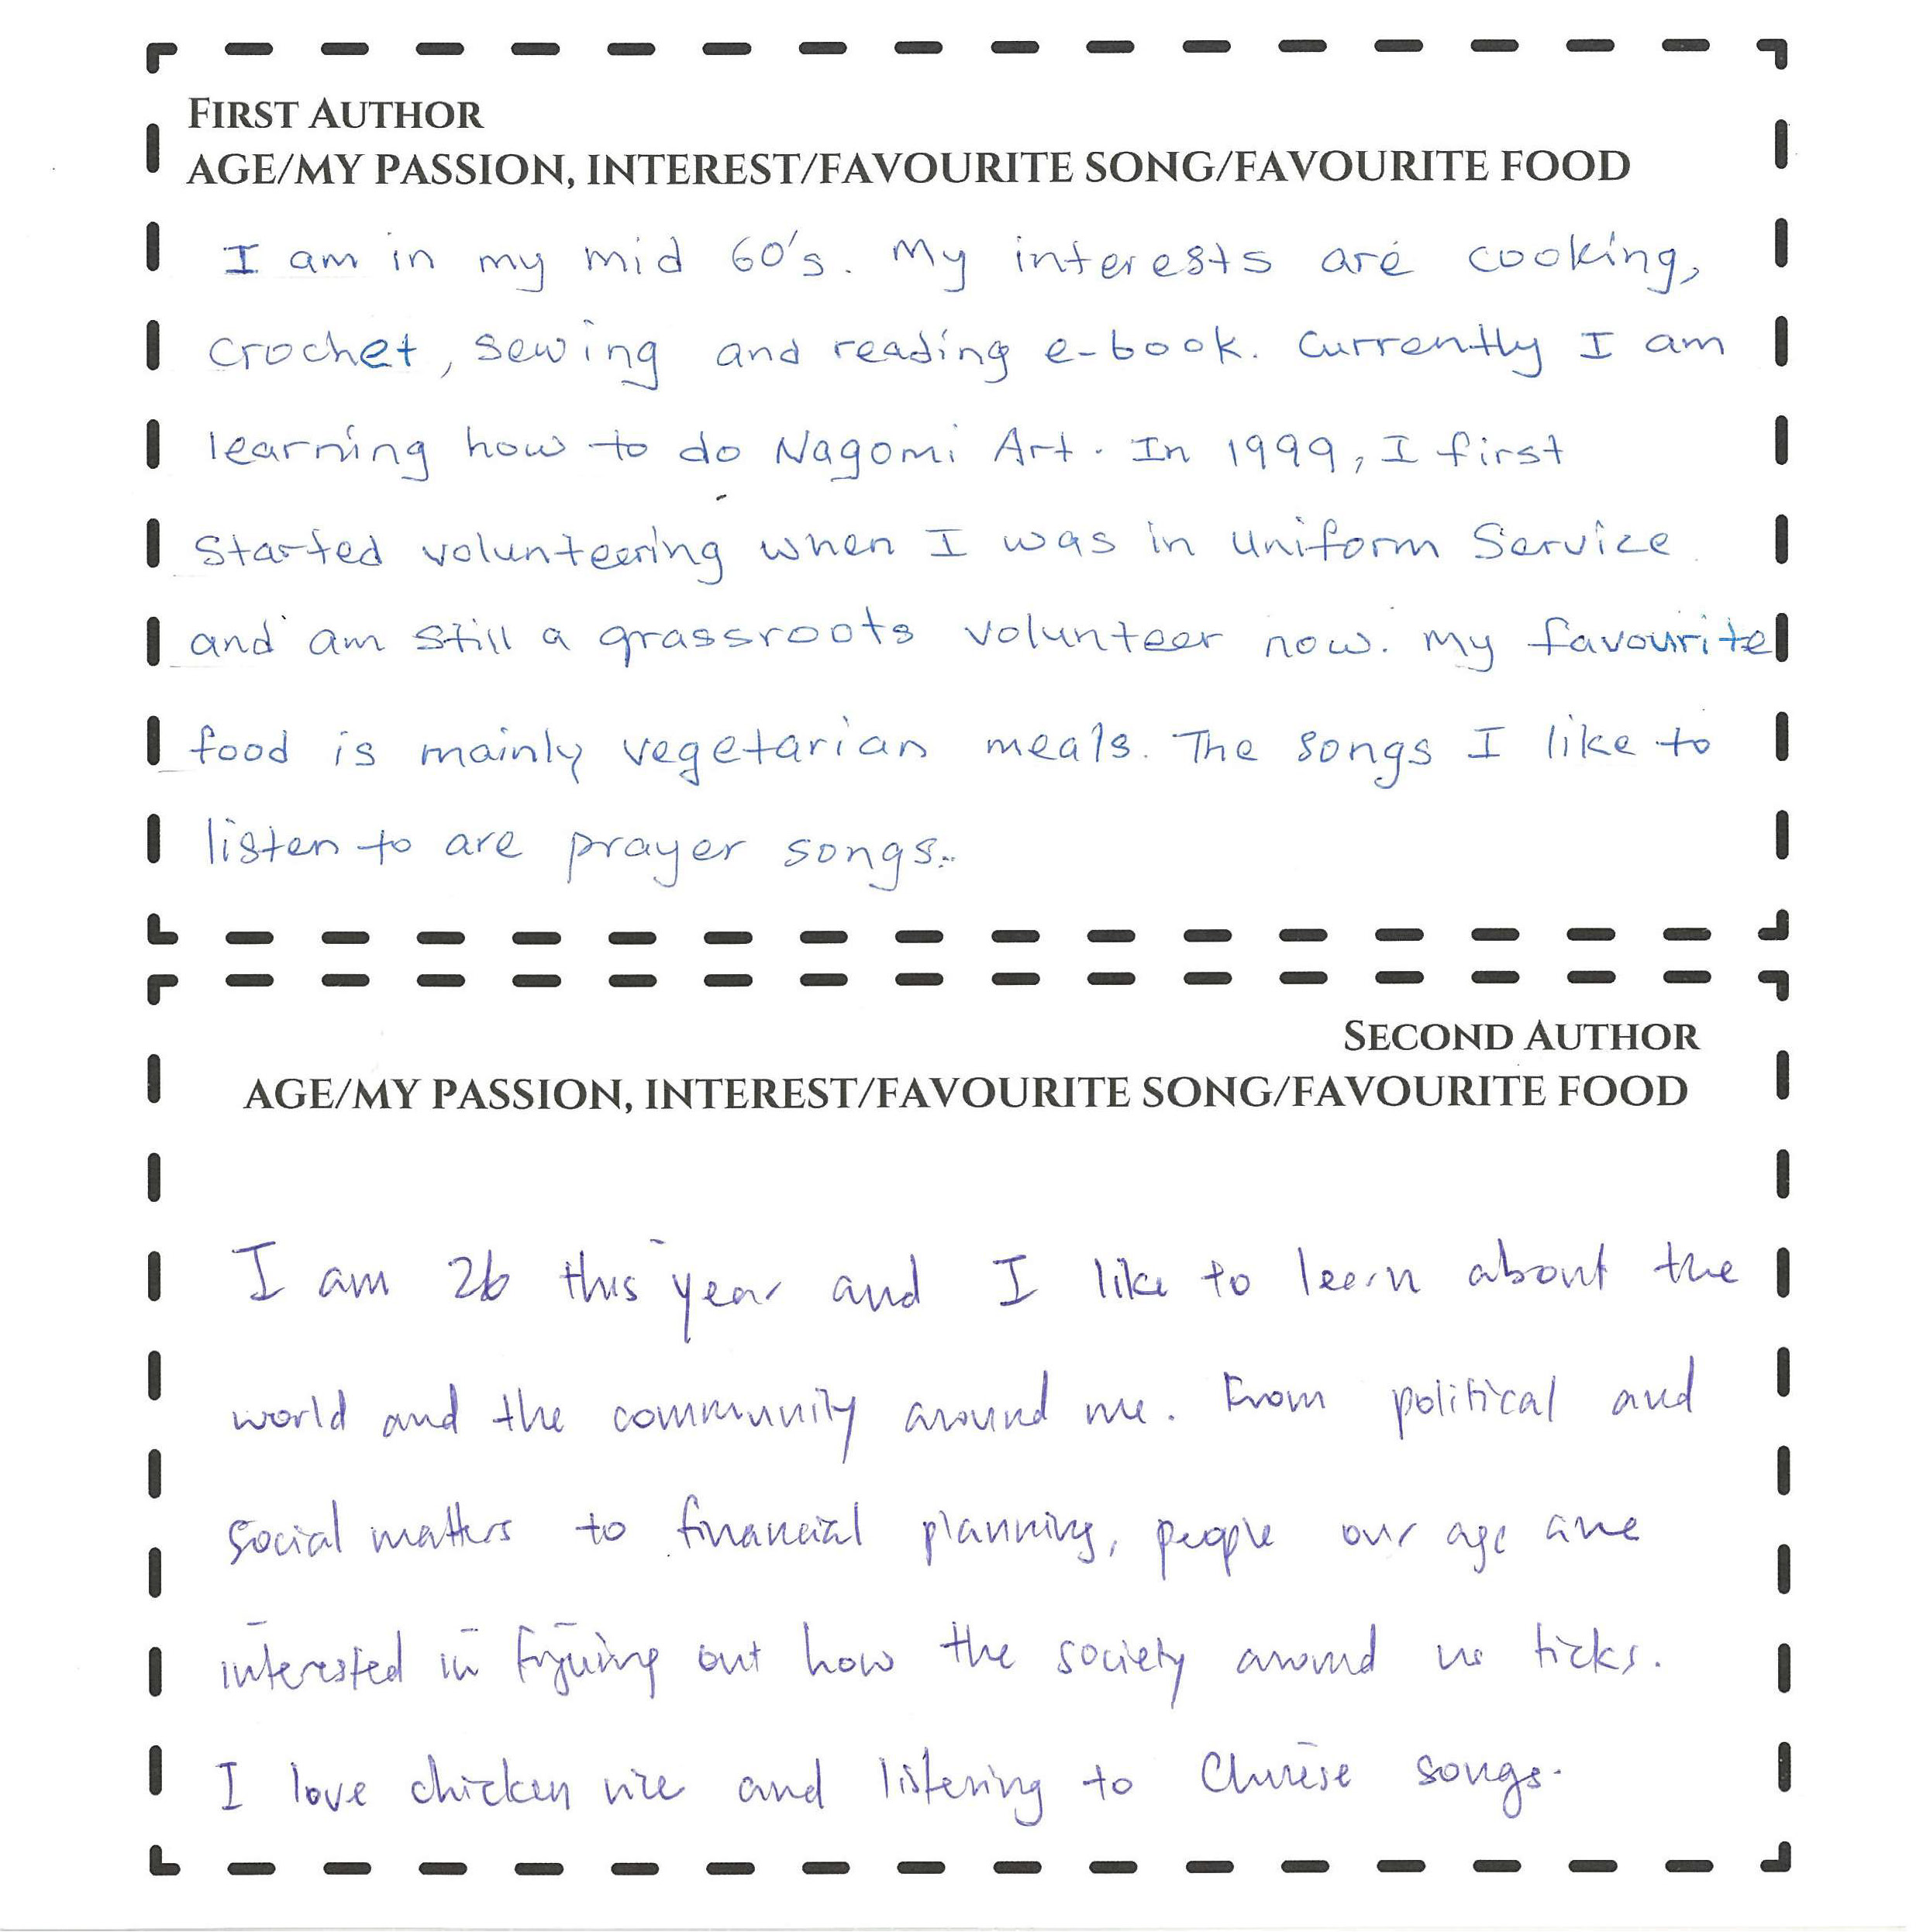 FIRST AUTHOR
AGE/MY PASSION, INTEREST/FAVOURITE SONG/FAVOURITE FOOD
I am in my mid 60's. My interests are cooking,
crochet, sewing and reading e-book. Currently I am
learning how to do Nagomi Art. In 1999, I first
started volunteering when I was in uniform service
and am still a grassroots volunteer now. My favourite
food is mainly vegetarian meals. The songs I like to
listen to are prayer songs.
SECOND AUTHOR
AGE/MY PASSION, INTEREST/FAVOURITE SONG/FAVOURITE FOOD
I am 26 this year and I like to learn about the
world and the community around me. From political and
social matters to financial planning, people our age are
interested in figuring out how the society around us ticks.
I love chicken rice and listening to Chinese songs.